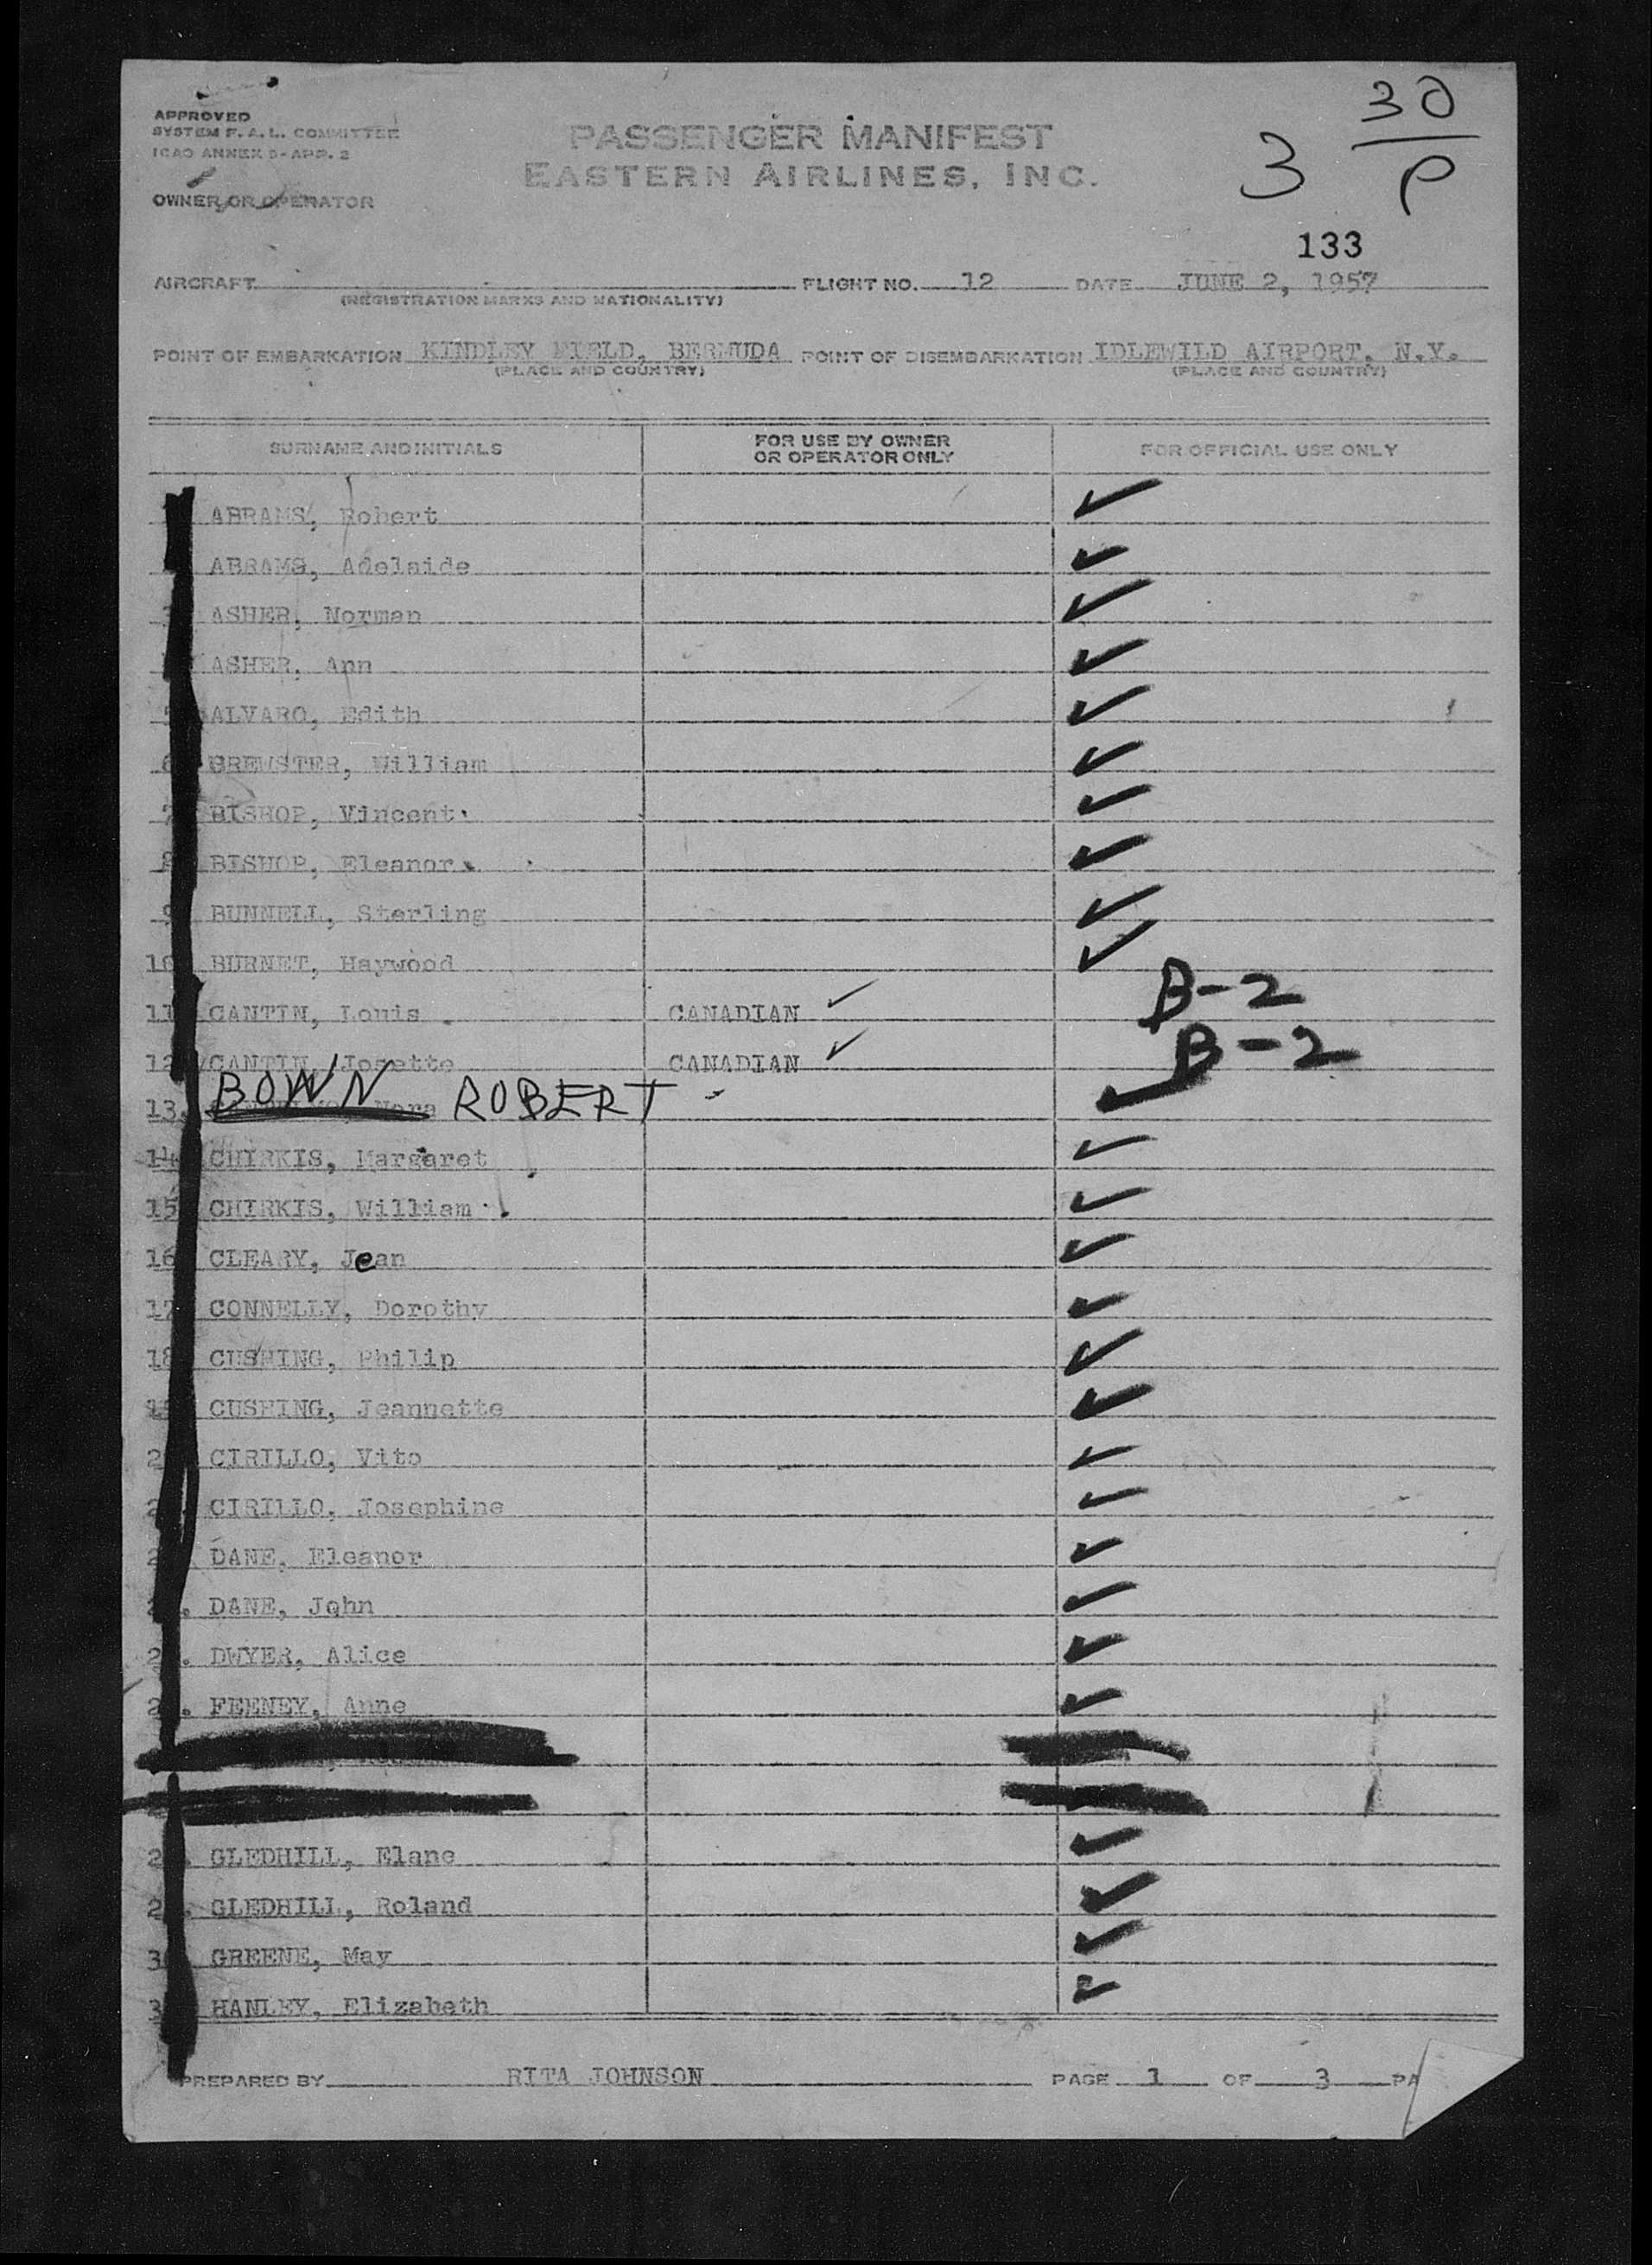 30
3 P
APPROVED
SYSTEM F. A. L. COMMITTEE
ICAO ANNEX 9-APP. 2
PASSENGER MANIFEST
EASTERN AIRLINES, INC.
OWNER OR OPERATOR
133
AIRCRAFT FLIGHT NO. 12 DATE JUNE 2, 1957
(REGISTRATION MARKS AND NATIONALITY)
POINT OF EMBARKATION KINDLEY FIELD, BERMUDA POINT OF DISEMBARKATION IDLEWILD AIRPORT, N.Y.
(PLACE AND COUNTRY) (PLACE AND COUNTRY)
SURNAME AND INITIALS FOR USE BY OWNER OR OPERATOR ONLY FOR OFFICIAL USE ONLY
ABRAMS, Robert ✓
ABRAMS, Adelaide ✓
3 ASHER, Norman ✓
ASHER, Ann ✓
5 ALVARO, Edith ✓
6 BREWSTER, William ✓
7 BISHOP, Vincent ✓
8 BISHOP, Eleanor ✓
9 BUNNELL, Sterling ✓
10 BURNET, Haywood ✓
11 CANTIN, Louis CANADIAN ✓ B-2
12 CANTIN, Josette CANADIAN ✓ B-2
13. BOWN ROBERT ✓
14 CHIRKIS, Margaret ✓
15 CHIRKIS, William ✓
16 CLEARY, Jean ✓
17 CONNELLY, Dorothy ✓
18 CUSHING, Philip ✓
19 CUSHING, Jeannette ✓
2 CIRILLO, Vito ✓
2 CIRILLO, Josephine ✓
2 DANE, Eleanor ✓
2 . DANE, John ✓
2 . DWYER, Alice ✓
2 . FEENEY, Anne ✓
2 . GLEDHILL, Elane ✓
2 . GLEDHILL, Roland ✓
3 . GREENE, May ✓
3 HANLEY, Elizabeth ✓
PREPARED BY RITA JOHNSON PAGE 1 OF 3 PA